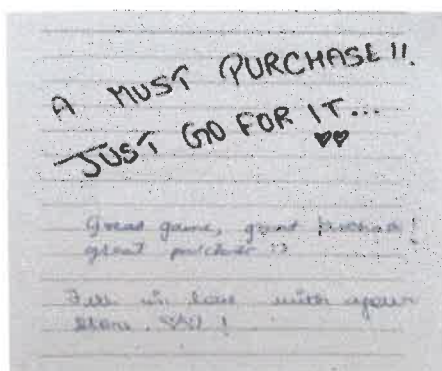 A MUST PURCHASE!!
JUST GO FOR IT...
Great game, great purchase!
great
Fell in love with your